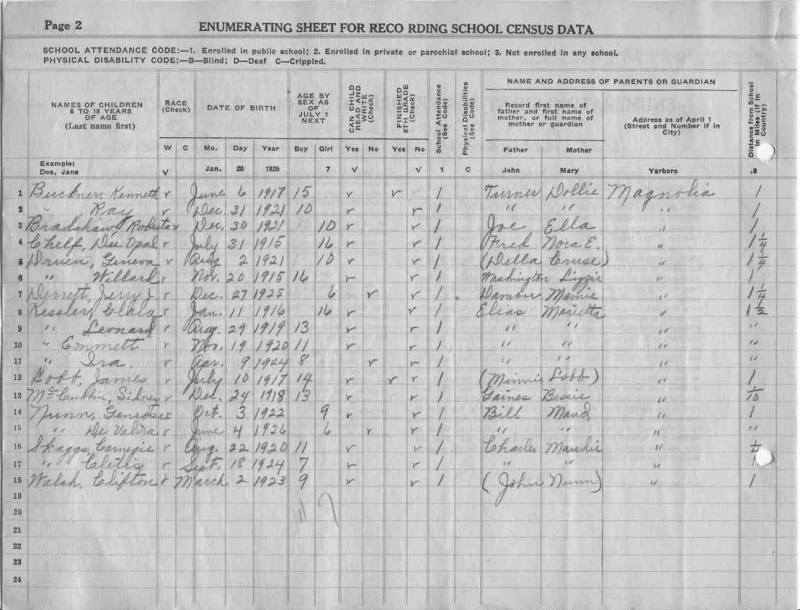 Page 2 ENUMERATING SHEET FOR RECO RDING SCHOOL CENSUS DATA
SCHOOL ATTENDANCE CODE:—1. Enrolled in public school; 2. Enrolled in private or parochial school; 3. Not enrolled in any school.
PHYSICAL DISABILITY CODE:—B—Blind; D—Deaf C—Crippled.
NAMES OF CHILDREN 6 TO 18 YEARS OF AGE (Last name first) RACE (Check) DATE OF BIRTH AGE BY SEX AS OF JULY 1 NEXT CAN CHILD READ AND WRITE (Check) FINISHED 8TH GRADE (Check) School Attendance (See Code) Physical Disabilities (See Code) NAME AND ADDRESS OF PARENTS OR GUARDIAN Distance from School in Miles (if in Country)
Record first name of father and first name of mother, or full name of mother or guardian Address as of April 1 (Street and Number if in City)
W C Mo. Day Year Boy Girl Yes No Yes No Father Mother
Example: Doe, Jane √ Jan. 20 1925 7 √ √ 1 C John Mary Yarboro .8
1 Buckner, Kenneth v June 6 1917 15 v v 1 Turner Dollie Magnolia 1
2 " Ray v Dec. 31 1921 10 v v 1 " " " 1
3 Bradshaw, Roberta v Dec. 30 1921 10 v v 1 Joe Ella " 1
4 Chelf, Dee Opal v July 31 1915 16 v v 1 Fred Nora E. " 1 1/4
5 Druen, Geneva v Aug 2 1921 10 v v 1 (Della Cruse) " 1 1/4
6 " Willard v Nov. 20 1915 16 v v 1 Washington Lizzie " 1
7 Derrett, Jerry J. v Dec. 27 1925 6 v v 1 Damon Mamie " 1 1/4
8 Kessler, Clala v Jan. 11 1916 16 v v 1 Elias Marietta " 1 1/2
9 " Leonard v Aug. 29 1919 13 v v 1 " " " "
10 " Emmett v Nov. 19 1920 11 v v 1 " " " "
11 " Ira v Apr. 9 1924 8 v v 1 " " " "
12 Lobb, James v July 10 1917 14 v v v 1 (Minnie Lobb) " 1
13 McCubbin, Sidney v Dec. 24 1918 13 v v 1 Gaines Bessie " 1/10
14 Nunn, v Oct. 3 1922 9 v v 1 Bill Maud " 1
15 " De Valira v June 4 1926 6 v v 1 " " " "
16 Skaggs, Carnegie v Aug. 22 1920 11 v v 1 Charlie Maudie "
17 " Cletis v Sept. 18 1924 7 v v 1 " " "
18 Walsh, Clifton v March 2 1923 9 v v 1 (John Nunn) " 1
19
20 11 7
21
22
23
24